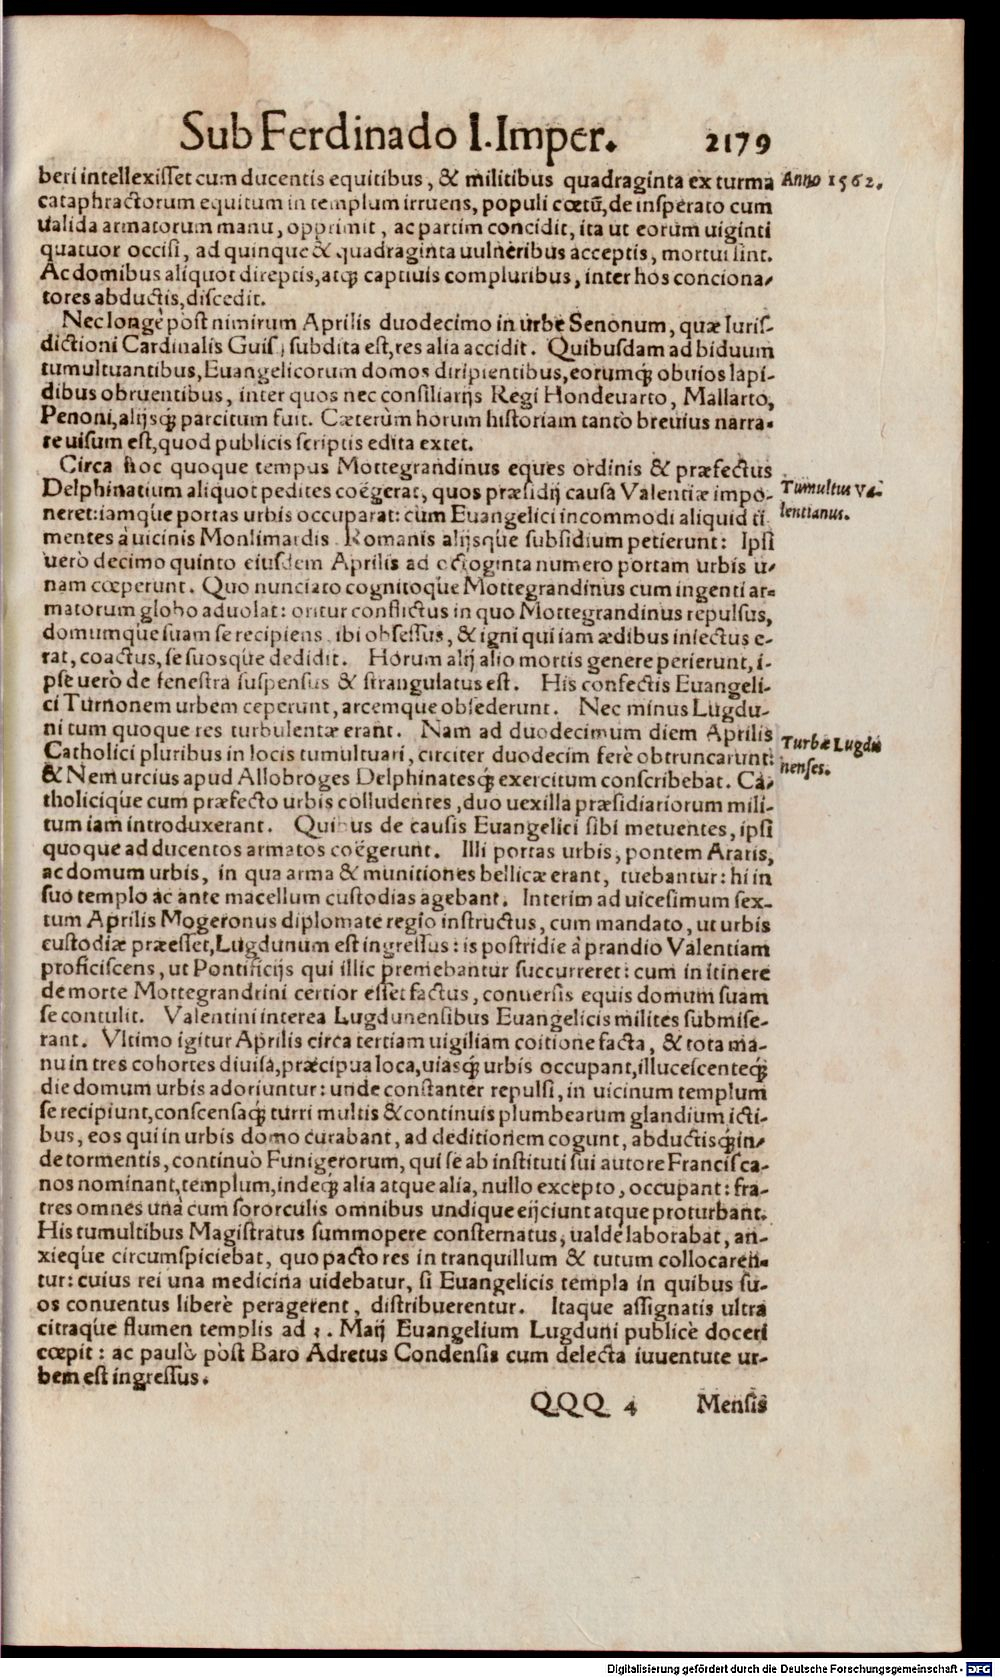 Sub Ferdinado I. Imper. 2179
beri intellexisset cum ducentis equitibus, & militibus quadraginta ex turma
Anno 1562.
cataphractorum equitum in templum irruens, populi cœtũ, de insperato cum
ualida armatorum manu, opprimit, ac partim concidit, ita ut eorum uiginti
quatuor occisi, ad quinque & quadraginta uulneribus acceptis, mortui sint.
Ac domibus aliquot direptis, atq; captiuis compluribus, inter hos conciona-
tores abductis, discedit.
Nec longè pòst nimirum Aprilis duodecimo in urbe Senonum, quæ Iuris-
dictioni Cardinalis Guis; subdita est, res alia accidit. Quibusdam ad biduum
tumultuantibus, Euangelicorum domos diripientibus, eorumq; obuios lapi-
dibus obruentibus, inter quos nec consiliarijs Regi Hondeuarto, Mallarto,
Penoni, alijsq; parcitum fuit. Cæterùm horum historiam tantò breuius narra-
re uisum est, quod publicis scriptis edita extet.
Circa hoc quoque tempus Mottegrandinus eques ordinis & præfectus
Delphinatium aliquot pedites coëgerat, quos præsidij causa Valentiæ impo-
Tumultus Va-
neret: iamque portas urbis occuparat: cum Euangelici incommodi aliquid ti-
lentianus.
mentes à uicinis Monlimardis Romanis alijsque subsidium petierunt: Ipsi
uerò decimo quinto eiusdem Aprilis ad octoginta numero portam urbis u-
nam cœperunt. Quo nunciato cognitoque Mottegrandinus cum ingenti ar-
matorum globo aduolat: oritur conflictus in quo Mottegrandinus repulsus,
domumque suam se recipiens ibi obsessus, & igni qui iam ædibus iniectus e-
rat, coactus, se suosque dedidit. Horum alij alio mortis genere perierunt, i-
pse uerò de fenestra suspensus & strangulatus est. His confectis Euangeli-
ci Turnonem urbem ceperunt, arcemque obsederunt. Nec minus Lugdu-
ni tum quoque res turbulentæ erant. Nam ad duodecimum diem Aprilis
Turbæ Lugdu
Catholici pluribus in locis tumultuari, circiter duodecim ferè obtruncarunt:
nenses.
& Nemurcius apud Allobroges Delphinatesq; exercitum conscribebat. Ca-
tholicique cum præfecto urbis colludentes, duo uexilla præsidiariorum mili-
tum iam introduxerant. Quibus de causis Euangelici sibi metuentes, ipsi
quoque ad ducentos armatos coëgerunt. Illi portas urbis, pontem Araris,
ac domum urbis, in qua arma & munitiones bellicæ erant, tuebantur: hi in
suo templo ac ante macellum custodias agebant. Interim ad uicesimum sex-
tum Aprilis Mogeronus diplomate regio instructus, cum mandato, ut urbis
custodiæ præesset, Lugdunum est ingressus: is postridie à prandio Valentiam
proficiscens, ut Pontificijs qui illic premebantur succurreret: cum in itinere
de morte Mottegrandrini certior esset factus, conuersis equis domum suam
se contulit. Valentini interea Lugdunensibus Euangelicis milites submise-
rant. Vltimo igitur Aprilis circa tertiam uigiliam coitione facta, & tota ma-
nu in tres cohortes diuisa, præcipua loca, uiasq; urbis occupant, illucescenteq;
die domum urbis adoriuntur: unde constanter repulsi, in uicinum templum
se recipiunt, conscensaq; turri multis & continuis plumbearum glandium icti-
bus, eos qui in urbis domo curabant, ad deditionem cogunt, abductisq; in-
de tormentis, continuò Funigerorum, qui se ab instituti sui autore Francisca-
nos nominant, templum, indeq; alia atque alia, nullo excepto, occupant: fra-
tres omnes unà cum sororculis omnibus undique eijciunt atque proturbant.
His tumultibus Magistratus summopere consternatus, ualdè laborabat, an-
xieque circumspiciebat, quo pacto res in tranquillum & tutum collocaren-
tur: cuius rei una medicina uidebatur, si Euangelicis templa in quibus su-
os conuentus liberè peragerent, distribuerentur. Itaque assignatis ultra
citraque flumen templis ad 3. Maij Euangelium Lugduni publicè doceri
cœpit: ac paulò pòst Baro Adretus Condensis cum delecta iuuentute ur-
bem est ingressus.
QQQ 4 Mensis
Digitalisierung gefördert durch die Deutsche Forschungsgemeinschaft - DFG